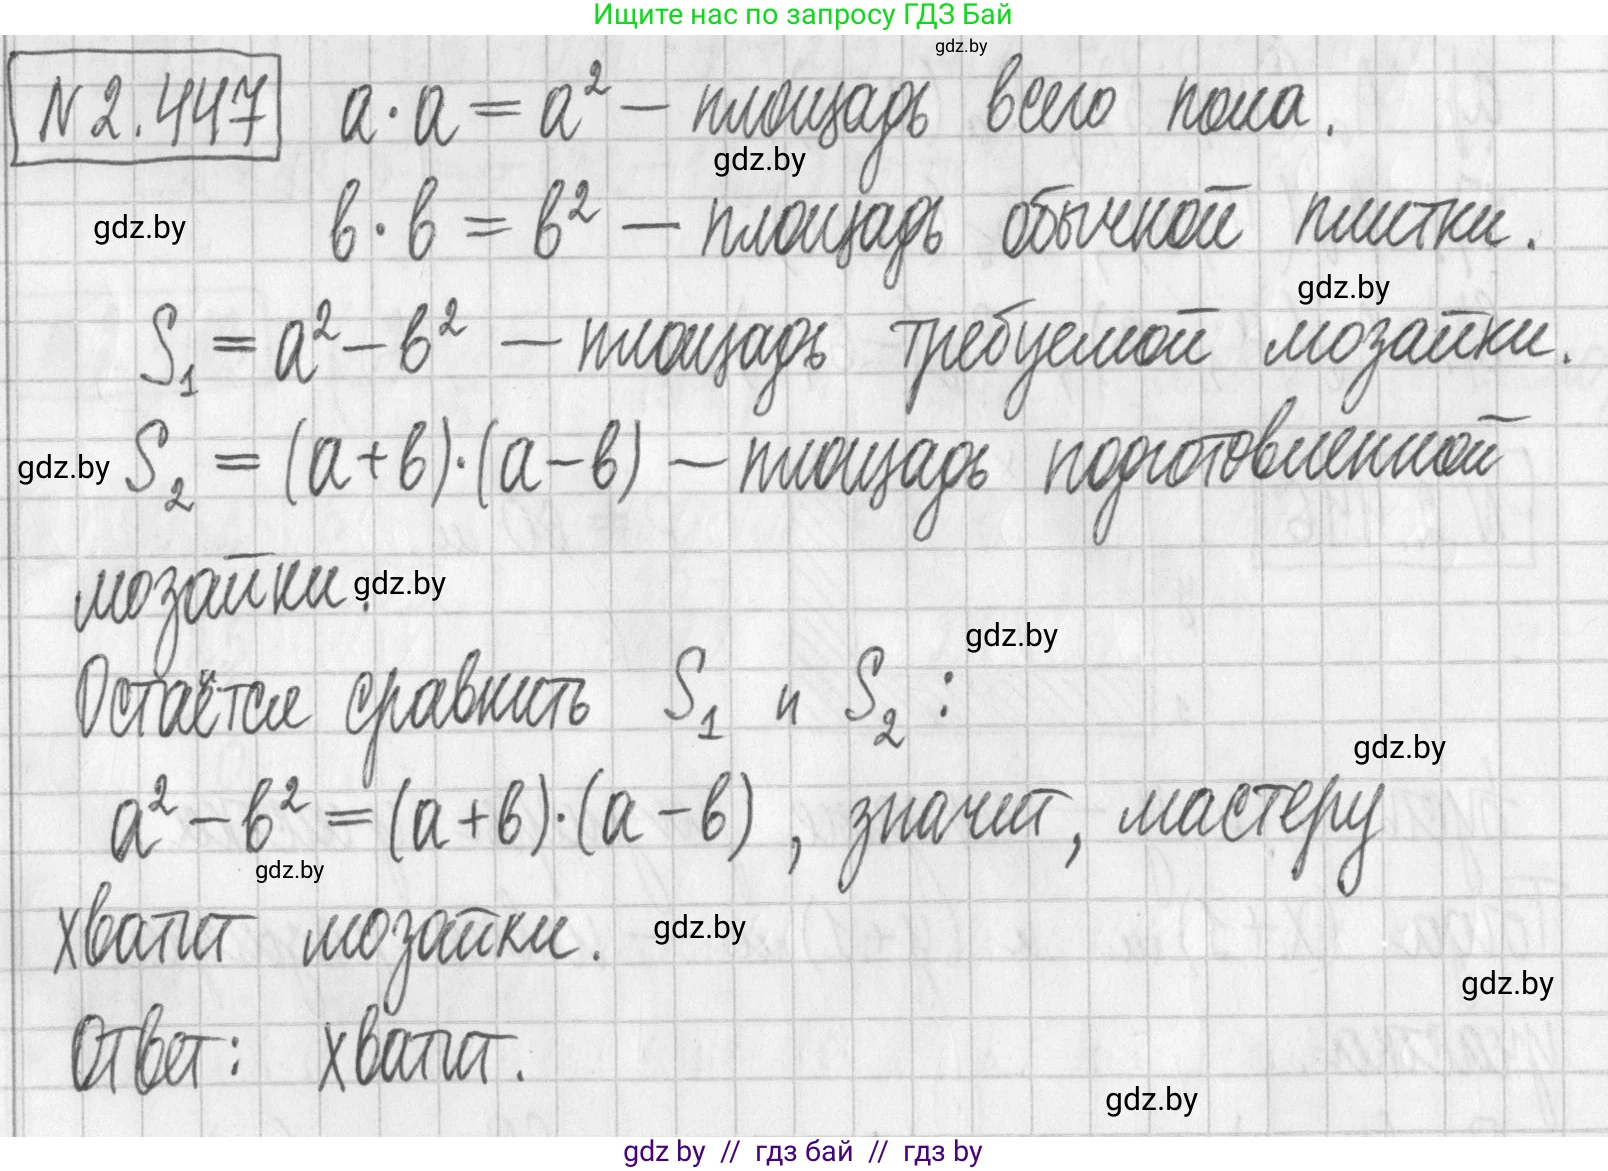 Ищите нас по запросу ГДЗ Бай
gdz.by
N 2.447 a·a = a² — площадь всего пола.
gdz.by
gdz.by
в·в = в² — площадь обычной плитки.
gdz.by
S₁ = a² − в² — площадь требуемой мозайки.
gdz.by S₂ = (a+в)·(a−в) — площадь подготовленной
мозайки. gdz.by
gdz.by
Остаётся сравнить S₁ и S₂:
gdz.by
a² − в² = (a+в)·(a−в), значит, мастеру
gdz.by
хватит мозайки. gdz.by
gdz.by
Ответ: хватит.
gdz.by
gdz by // гдз бай // гдз by